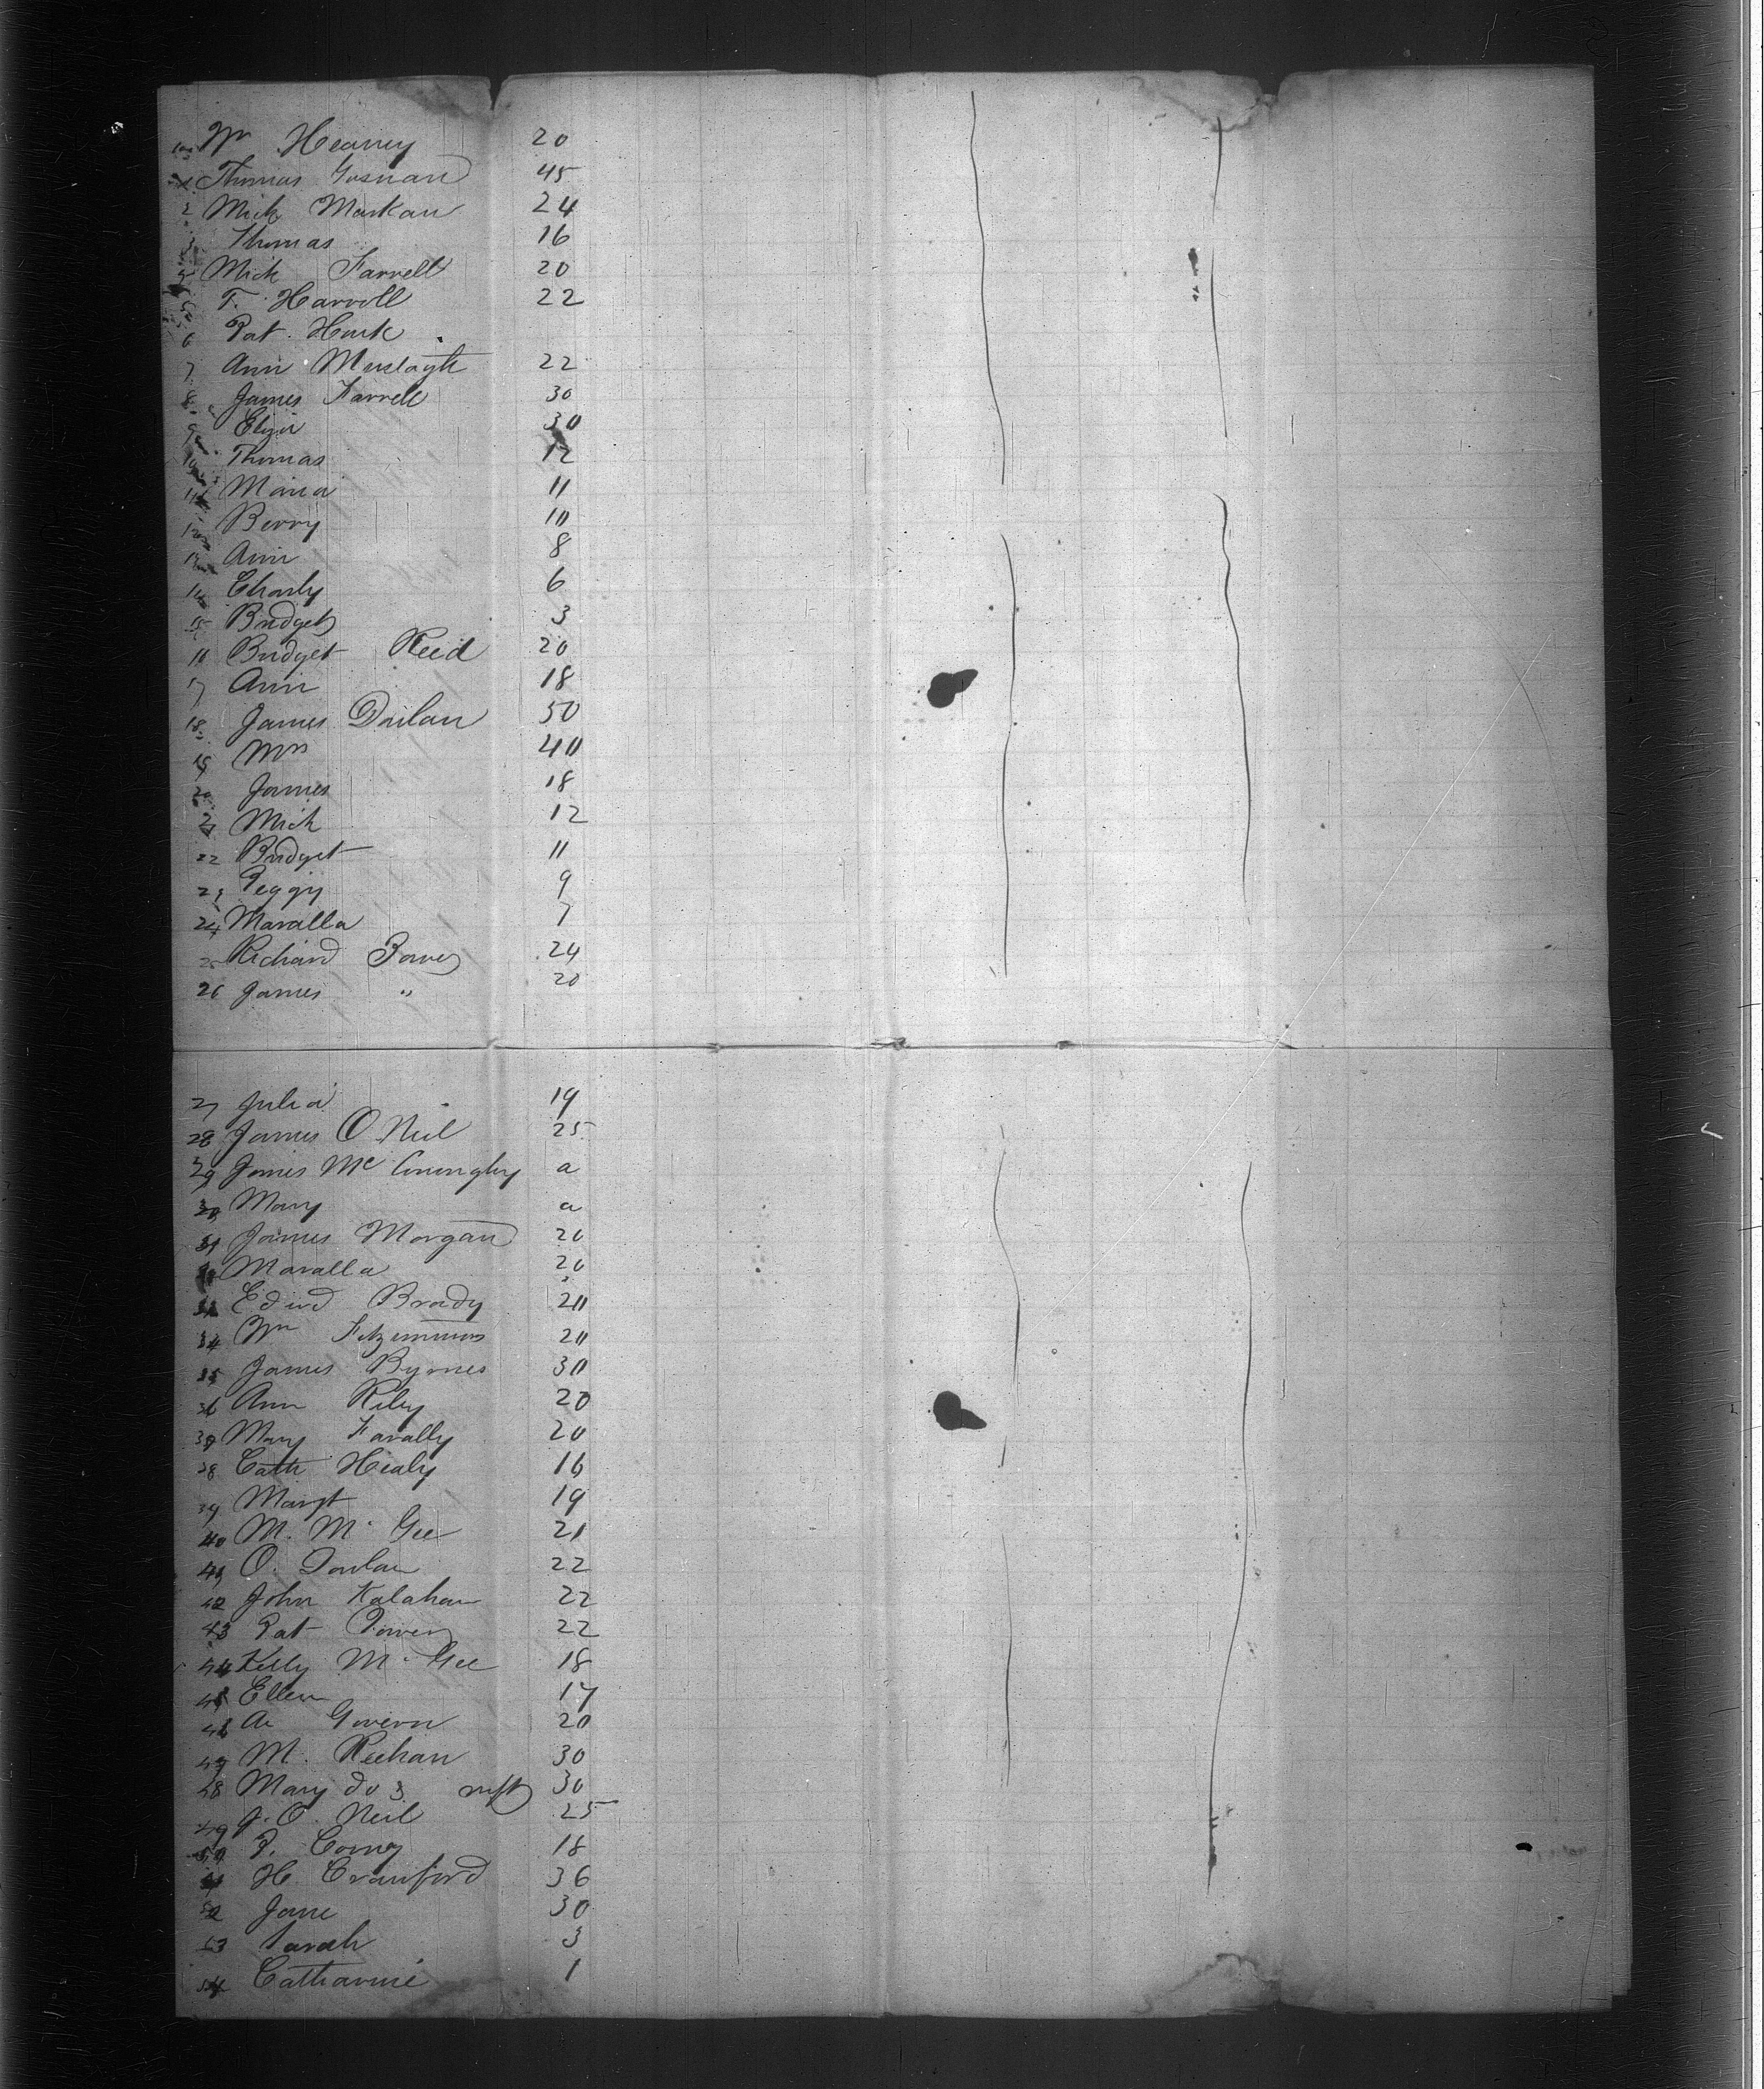 Wm Heaney 20
Thomas Gosnan 45
2 Mick Markan 24
3 Thomas 16
Mick Farrell 20
5 T. Harroll 22
6 Pat. Hark
7 Ann 22
8 James Farrell 30
9 Eliza 30
10 Thomas 12
11 Maria 11
12 Berry 10
13 Ann 8
14 Charly 6
15 Bridget 3
16 Bridget Reed 20
17 Ann 18
18 James Donlan 50
19 Mrs 40
20 James 18
21 Mick 12
22 Bridget 11
23 Peggy 9
24 Maralla 7
25 Richard Power 24
26 James " 20
27 Julia 19
28 James O Neil 25
29 James Mc a
30 Mary a
31 James Morgan 20
Maralla 20
33 Edwd Brady 20
34 Wm Fitzemmons 20
35 James Byrnes 30
36 Ann Riley 20
37 Mary Farally 20
38 Cath Healy 16
39 Margt 19
40 M. Mc Gee 21
41 O. Donlan 22
42 John Kalahan 22
43 Pat Power 22
44 Kelly Mc Gee 18
45 Ellen 17
46 A Govern 20
47 M. Reehan 30
48 Mary do 3 30
49 J. O. Neil 25
50 P. Corney 18
51 H. Crawford 36
52 Jane 30
53 Sarah 3
54 Catharine 1